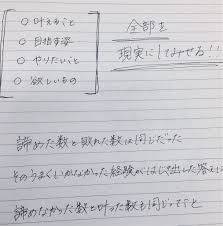 ○ 叶えたいこと
○ 目指す姿
○ やりたいこと
○ 欲しいもの
全部を
現実にしてみせる!!
諦めた数と敗れた数は同じだった
そのうまくいかなかった経験がはじき出した答えは
諦めなかった数と叶った数も同じってこと